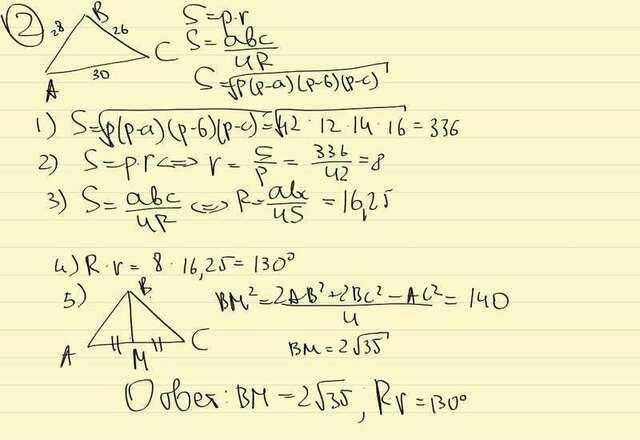 2
B
28
26
C
A
30
S=p·r
S=abc/4R
S=√p(p-a)(p-b)(p-c)
1) S=√p(p-a)(p-b)(p-c)=√42·12·14·16=336
2) S=p·r⟺r=S/p=336/42=8
3) S=abc/4R⟺R=abc/4S=16,25
4) R·r=8·16,25=130°
5)
B
A
M
C
BM²=2AB²+2BC²-AC²/4=140
BM=2√35
Ответ: BM=2√35; Rr=130°